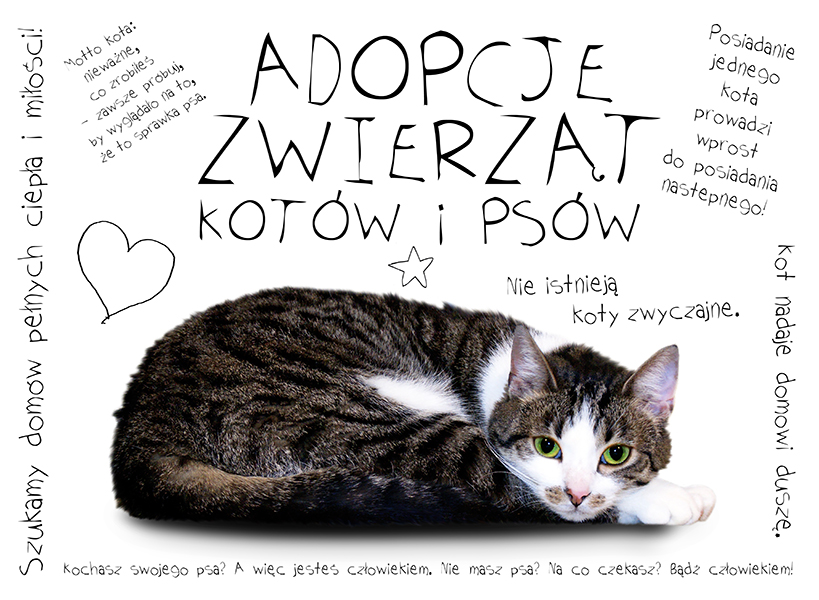 Szukamy domów pełnych ciepła i miłości!
Motto kota:
nieważne,
co zrobiłeś
- zawsze próbuj,
by wyglądało na to,
że to sprawka psa.
ADOPCJE
ZWIERZĄT
KOTÓW i PSÓW
Posiadanie
jednego
kota
prowadzi
wprost
do posiadania
nastepnego!
Nie istnieją
koty zwyczajne.
Kot nadaje domowi duszę.
Kochasz swojego psa? A więc jestes człowiekiem. Nie masz psa? Na co czekasz? Bądz człowiekiem!